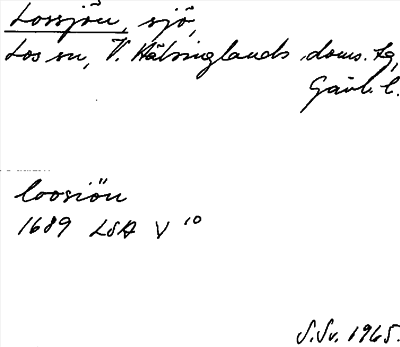 Lossjön, sjö,
Los sn, V. Hälsinglands doms. tg,
Gävl. l.
loosiön
1689 LSA V 10
S.Sv. 1965.